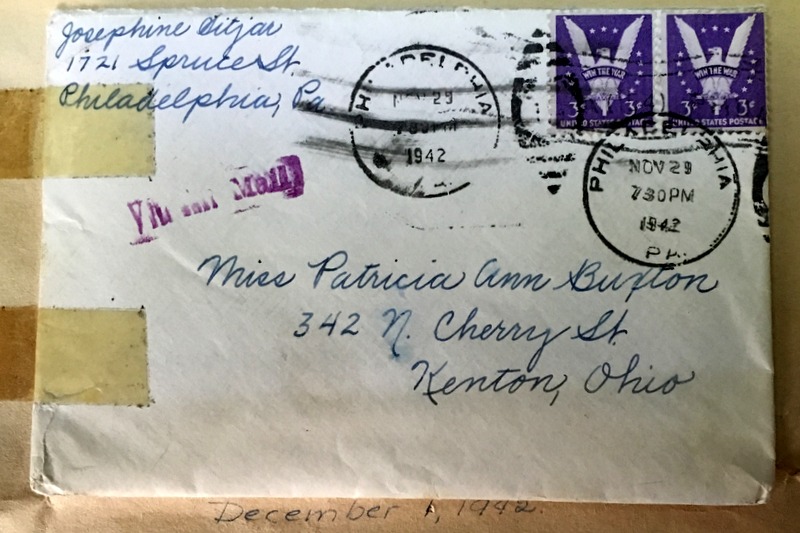 Josephine Ditjar
1721 Spruce St.
Philadelphia, Pa.
PHILADELPHIA
NOV 29
7 30 PM
1942
WIN THE WAR
3¢ 3¢
UNITED STATES POSTAGE
WIN THE WAR
3¢ 3¢
UNITED STATES POSTAGE
PHILADELPHIA
NOV 29
7 30 PM
1942
PA.
Via Air Mail
Miss Patricia Ann Buxton
342 N. Cherry St.
Kenton, Ohio
December 1, 1942.